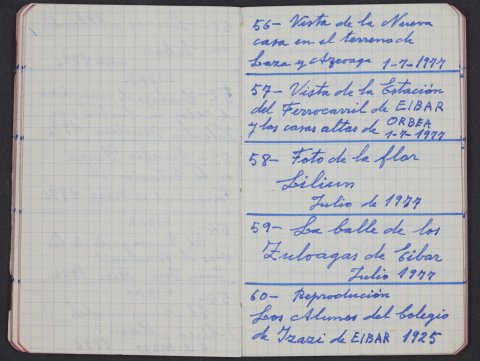 56- Vista de la Nueva
casa en el terreno de
Laza y Azcoaga 1-7-1977
57- Vista de la Estación
del Ferrocarril de EIBAR
y las casas altas de ORBEA
1-7-1977
58- Foto de la flor
Lilium
Julio de 1977
59- La Calle de los
Zuloagas de Eibar
Julio 1977
60- Reproducción
Los Alunos del Colegio
de Izazi de EIBAR 1925